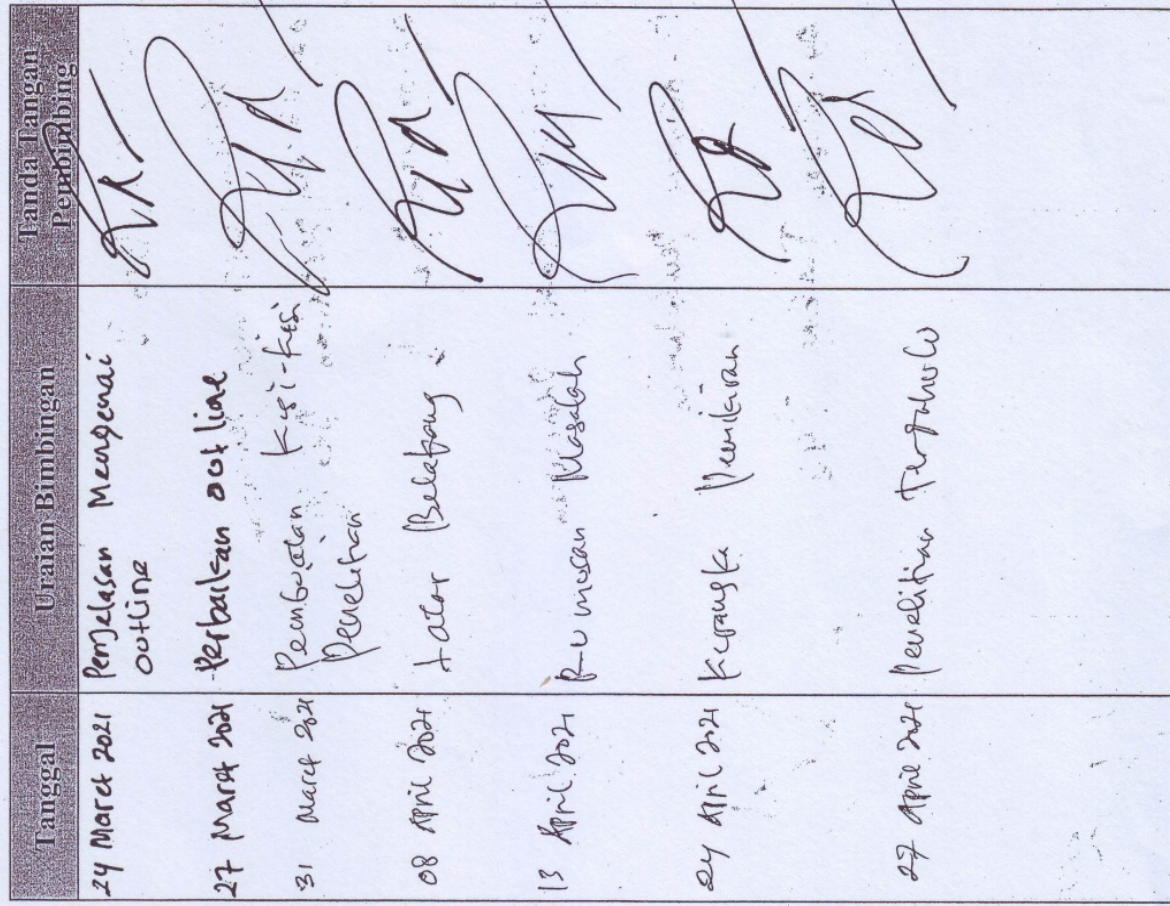 Tanggal
Uraian Bimbingan
Tanda Tangan
Pembimbing
24 Maret 2021
Penjelasan Mengenai
outline
27 Maret 2021
Perbaikan outline
31 Maret 2021
Pembuatan kisi-kisi
Penelitian
08 April 2021
Latar Belakang
13 April 2021
Rumusan Masalah
24 April 2021
Kerangka Pemikiran
27 April 2021
Penelitian terdahulu